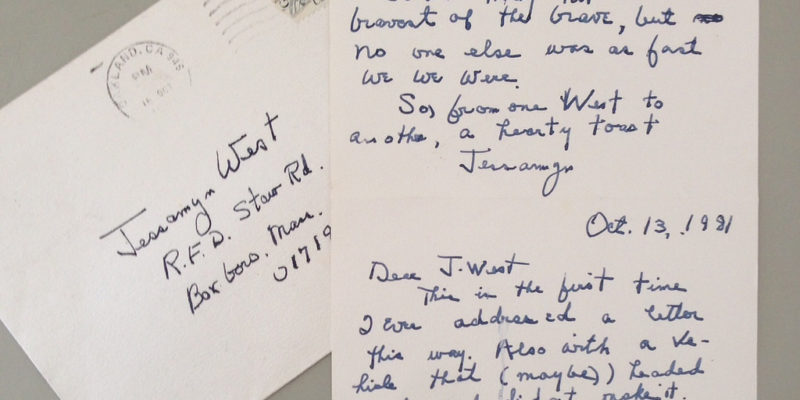 OAKLAND, CA 946
PM
OCT
Jessamyn West
R.F.D. Stow Rd.
Boxboro, Mass.
01719
bravest of the brave, but
no one else was as fast
we we were.
So, from one West to
another, a hearty toast
Jessamyn
Oct. 13, 1981
Dear J. West
This is the first time
I ever addressed a letter
this way. Also with a ve-
hicle that (maybe)) headed
didn't make it.